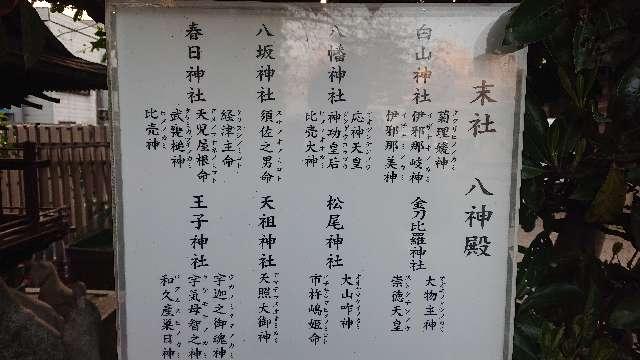 末社 八神殿
白山神社
菊理媛神
伊邪那岐神
伊邪那美神
八幡神社
応神天皇
神功皇后
比売大神
八坂神社
須佐之男命
春日神社
経津主命
天児屋根命
武甕槌神
比売神
金刀比羅神社
大物主神
崇徳天皇
松尾神社
大山咋神
市杵嶋姫命
天祖神社
天照大御神
王子神社
宇迦之御魂神
宇気母智之神
和久産巣日神